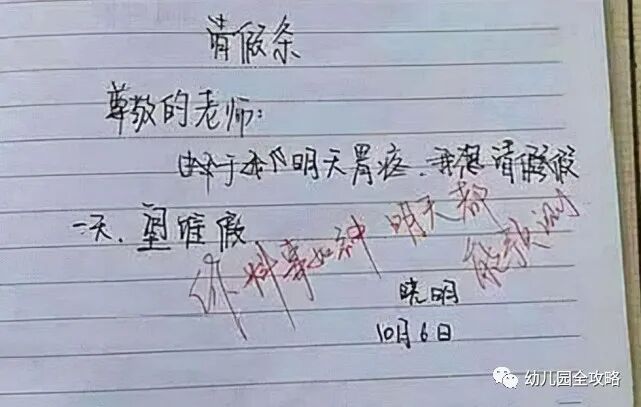 请假条
尊敬的老师:
由于我明天胃疼.我想请假假
一天.望准假
你料事如神 明天都
能预测
晓明
10月6日
幼儿园全攻略